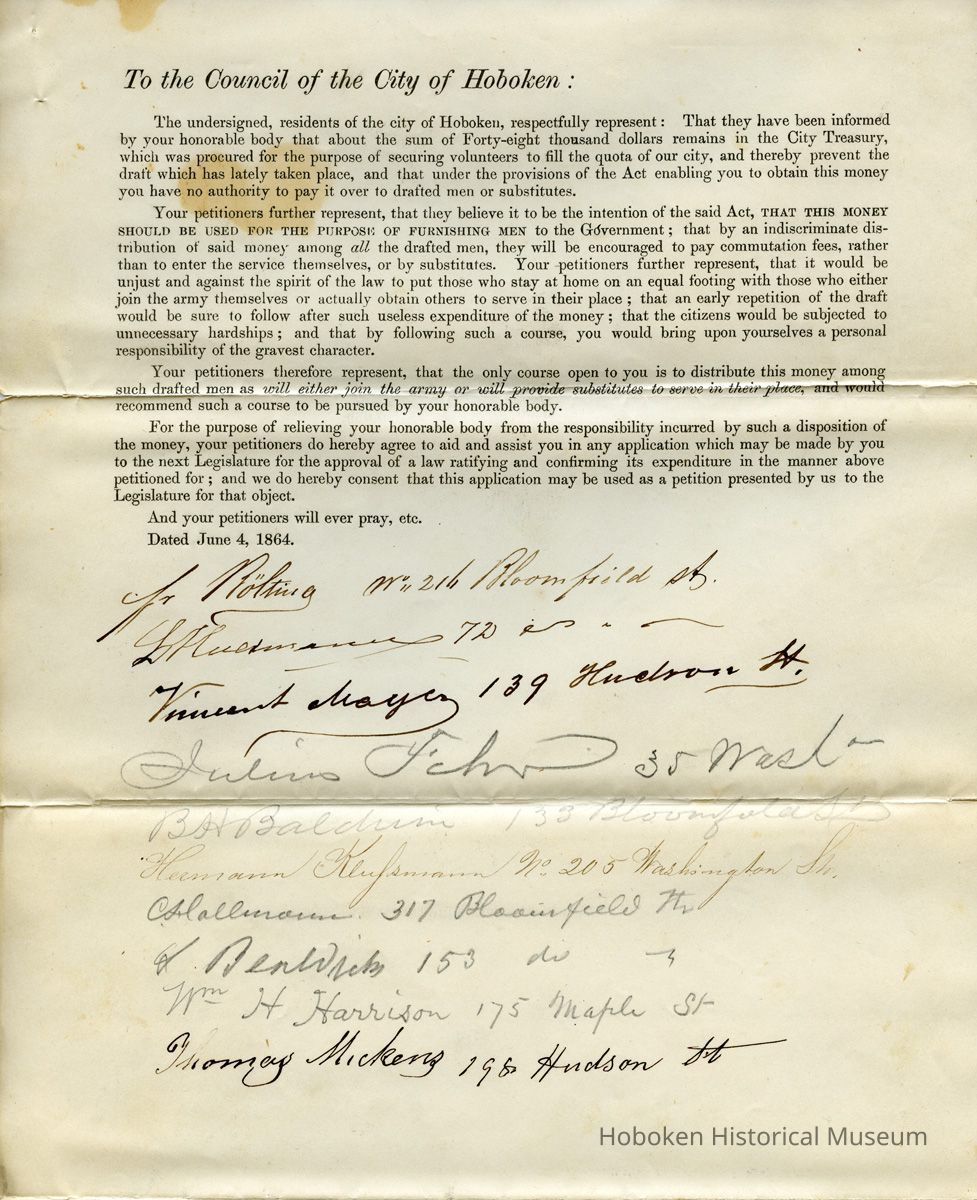 To the Council of the City of Hoboken :
The undersigned, residents of the city of Hoboken, respectfully represent : That they have been informed
by your honorable body that about the sum of Forty-eight thousand dollars remains in the City Treasury,
which was procured for the purpose of securing volunteers to fill the quota of our city, and thereby prevent the
draft which has lately taken place, and that under the provisions of the Act enabling you to obtain this money
you have no authority to pay it over to drafted men or substitutes.
Your petitioners further represent, that they believe it to be the intention of the said Act, THAT THIS MONEY
SHOULD BE USED FOR THE PURPOSE OF FURNISHING MEN to the Government ; that by an indiscriminate dis-
tribution of said money among all the drafted men, they will be encouraged to pay commutation fees, rather
than to enter the service themselves, or by substitutes. Your petitioners further represent, that it would be
unjust and against the spirit of the law to put those who stay at home on an equal footing with those who either
join the army themselves or actually obtain others to serve in their place ; that an early repetition of the draft
would be sure to follow after such useless expenditure of the money ; that the citizens would be subjected to
unnecessary hardships ; and that by following such a course, you would bring upon yourselves a personal
responsibility of the gravest character.
Your petitioners therefore represent, that the only course open to you is to distribute this money among
such drafted men as will either join the army or will provide substitutes to serve in their place, and would
recommend such a course to be pursued by your honorable body.
For the purpose of relieving your honorable body from the responsibility incurred by such a disposition of
the money, your petitioners do hereby agree to aid and assist you in any application which may be made by you
to the next Legislature for the approval of a law ratifying and confirming its expenditure in the manner above
petitioned for ; and we do hereby consent that this application may be used as a petition presented by us to the
Legislature for that object.
And your petitioners will ever pray, etc.
Dated June 4, 1864.
fr Rölting No 216 Bloomfield st.
72
Vincent Mayer 139 Hudson St.
Julius Fehr 35 Washn
B H Baldwin 133 Bloomfield St
Hermann Kleussmann No 205 Washington St.
317 Bloomfield Str
153 do "
Wm H Harrison 175 Maple St
Thomas Mickens 198 Hudson St
Hoboken Historical Museum